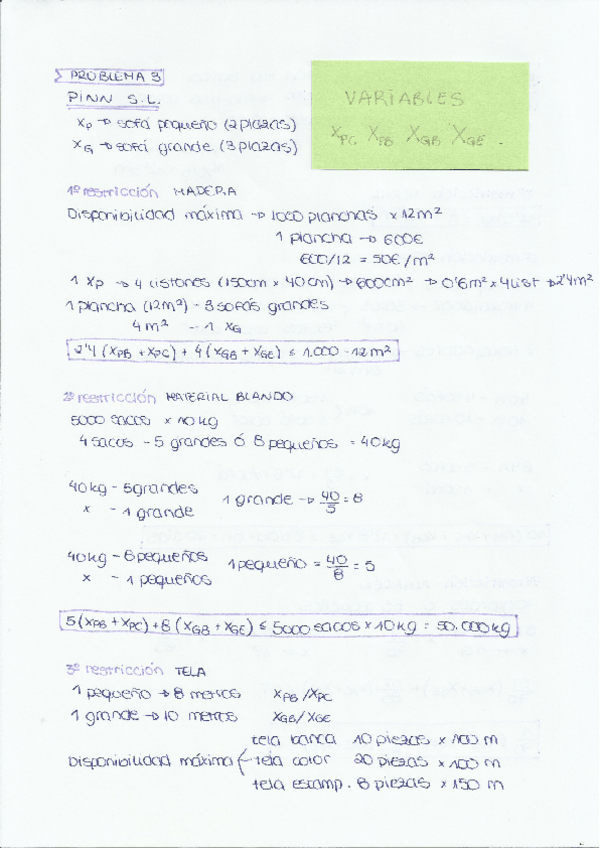 PROBLEMA 3
PINN S.L.
VARIABLES
XPC XPB XGB XGE.
XP → sofá pequeño (2 plazas)
XG → sofá grande (3 plazas)
1º restricción MADERA
Disponibilidad máxima → 1000 planchas x 12m²
1 plancha → 600€
600/12 = 50€/m²
1 XP → 4 listones (150cm x 40cm) → 600cm² → 0'6m² x 4 list → 2'4m²
1 plancha (12m²) - 3 sofás grandes
4m² - 1 XG
2'4 (XPB + XPC) + 4 (XGB + XGE) ≤ 1.000 · 12m²
2º restricción MATERIAL BLANDO
5000 sacos x 10kg
4 sacos - 5 grandes ó 8 pequeños = 40kg
40kg - 5 grandes
x - 1 grande
1 grande → 40/5 = 8
40kg - 8 pequeños
x - 1 pequeños
1 pequeño = 40/8 = 5
5 (XPB + XPC) + 8 (XGB + XGE) ≤ 5000 sacos x 10kg = 50.000kg
3º restricción TELA
1 pequeño → 8 metros XPB/XPC
1 grande → 10 metros XGB/XGE
tela banca 10 piezas x 100 m
Disponibilidad máxima tela color 20 piezas x 100 m
tela estamp. 8 piezas x 150 m